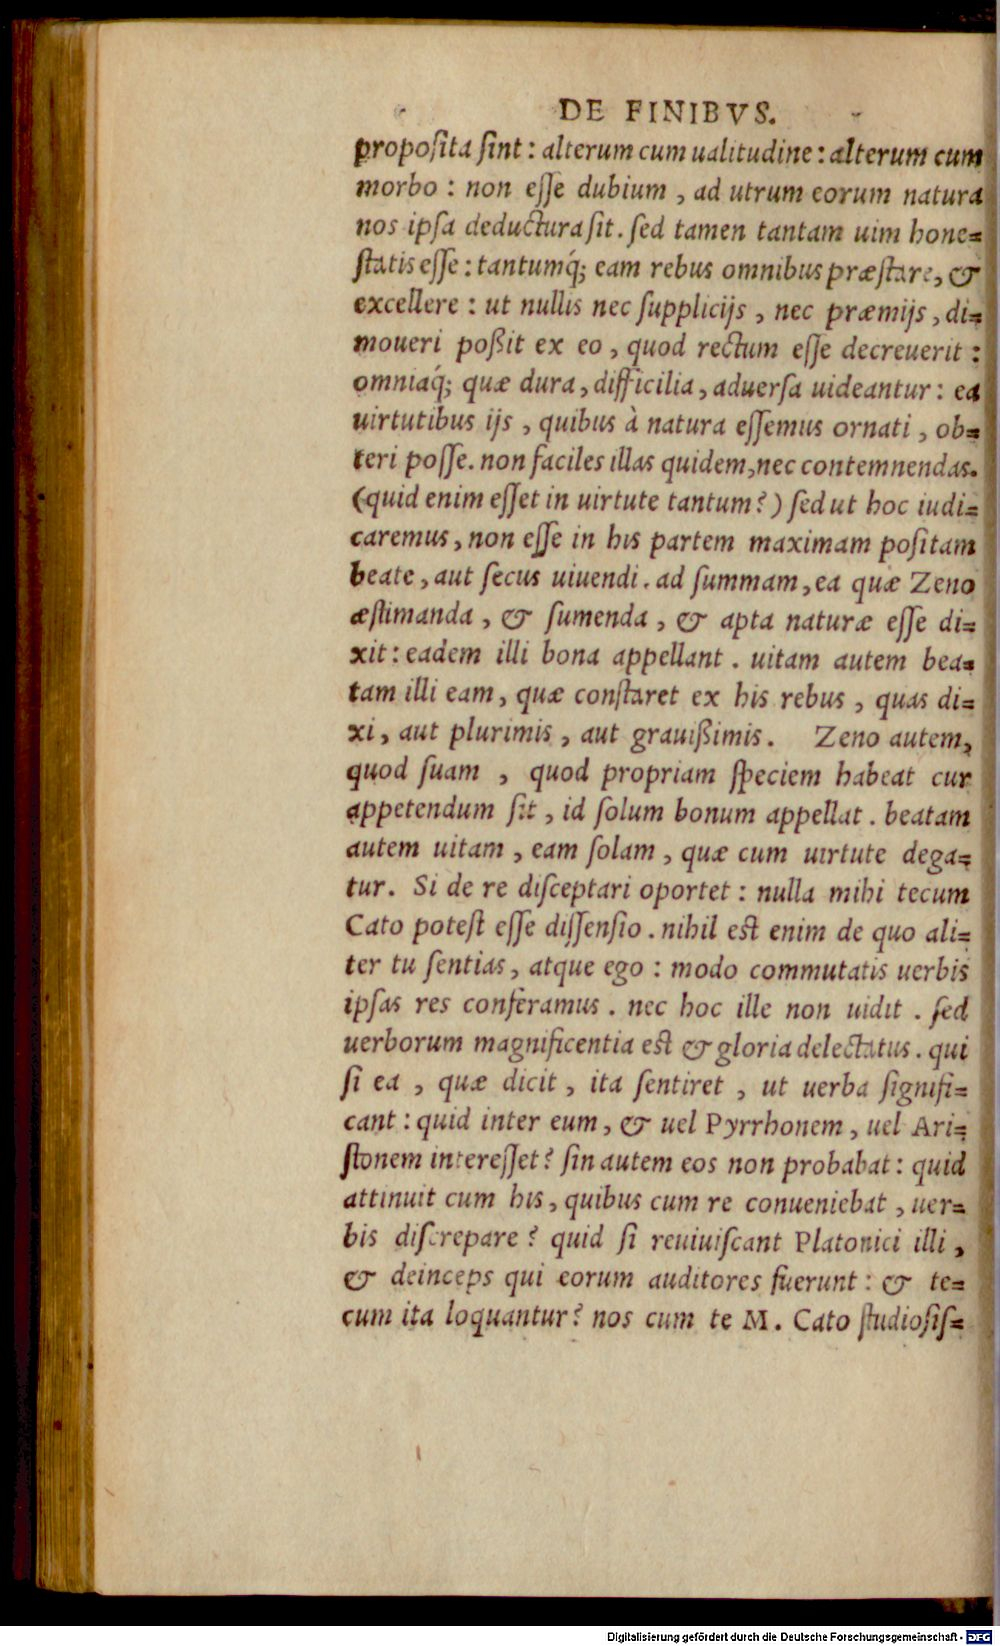 DE FINIBVS.
propoſita ſint : alterum cum ualitudine : alterum cum
morbo : non eſſe dubium , ad utrum eorum natura
nos ipſa deductura ſit . ſed tamen tantam uim hone=
ſtatis eſſe : tantumq́; eam rebus omnibus præſtare, &
excellere : ut nullis nec ſupplicijs , nec præmijs , di=
moueri poßit ex eo , quod rectum eſſe decreuerit :
omniaq́; quæ dura , difficilia , aduerſa uideantur : ea
uirtutibus ijs , quibus à natura eſſemus ornati , ob=
teri poſſe. non faciles illas quidem, nec contemnendas.
(quid enim eſſet in uirtute tantum?) ſed ut hoc iudi=
caremus, non eſſe in his partem maximam poſitam
beate , aut ſecus uiuendi . ad ſummam , ea quæ Zeno
æſtimanda , & ſumenda , & apta naturæ eſſe di=
xit : eadem illi bona appellant . uitam autem bea=
tam illi eam , quæ conſtaret ex his rebus , quas di=
xi , aut plurimis , aut grauißimis . Zeno autem,
quod ſuam , quod propriam ſpeciem habeat cur
appetendum ſit , id ſolum bonum appellat . beatam
autem uitam , eam ſolam , quæ cum uirtute dega=
tur. Si de re diſceptari oportet : nulla mihi tecum
Cato poteſt eſſe diſſenſio . nihil eſt enim de quo ali=
ter tu ſentias, atque ego : modo commutatis uerbis
ipſas res conferamus . nec hoc ille non uidit . ſed
uerborum magnificentia eſt & gloria delectatus . qui
ſi ea , quæ dicit , ita ſentiret , ut uerba ſignifi=
cant : quid inter eum , & uel Pyrrhonem , uel Ari=
ſtonem intereſſet? ſin autem eos non probabat : quid
attinuit cum his , quibus cum re conueniebat , uer=
bis diſcrepare ? quid ſi reuiuiſcant Platonici illi ,
& deinceps qui eorum auditores fuerunt : & te=
cum ita loquantur? nos cum te M. Cato ſtudioſiſ=
Digitalisierung gefördert durch die Deutsche Forschungsgemeinschaft - DFG